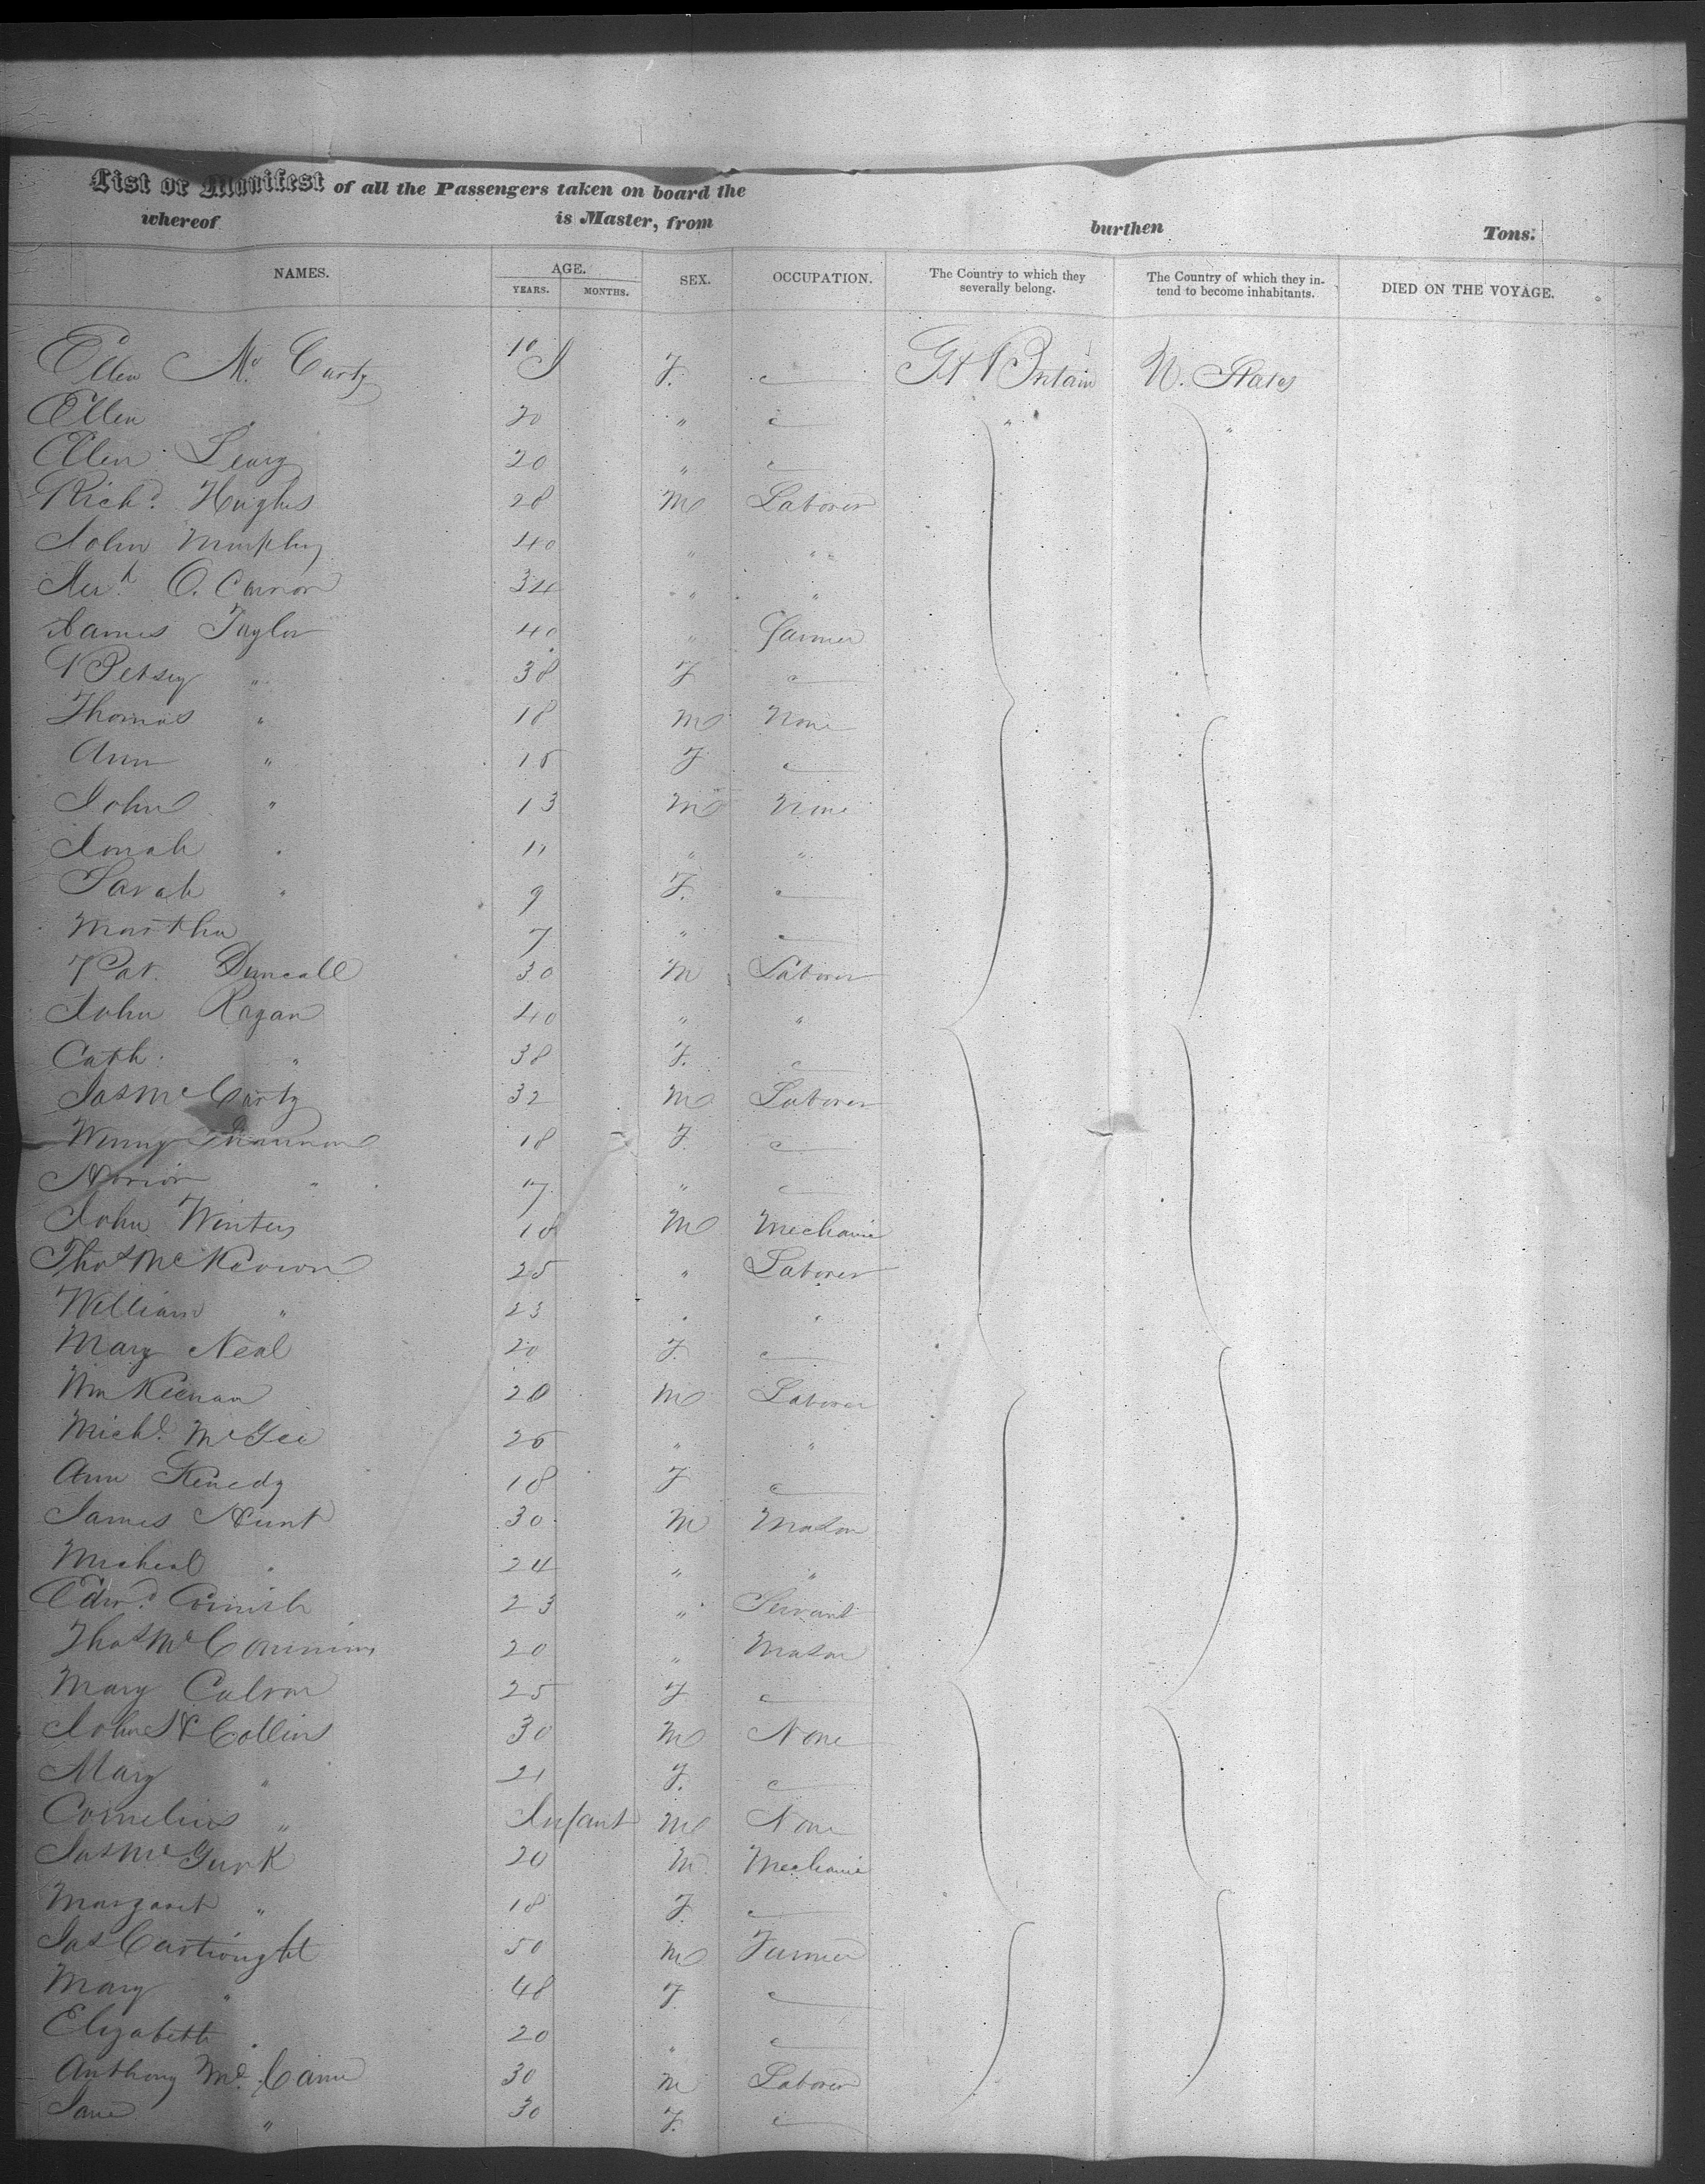 List or Manifest of all the Passengers taken on board the
whereof is Master, from burthen Tons.
NAMES. AGE. YEARS. MONTHS. SEX. OCCUPATION. The Country to which they severally belong. The Country of which they intend to become inhabitants. DIED ON THE VOYAGE.
Ellen Mc. Carty F. Gt Britain U. States
Ellen 20 " "  "
Ellen Leary 20 "
Richd. Hughes 28 M Laborer
John Murphy 40 " "
O. Connor 34 " "
James Taylor 40 " farmer
Betsey " 38 F
Thomas " 18 M None
Ann " 15 F
John " 13 M None
Jonah " 11 " "
Sarah " 9 F.
Martha 7 "
Pat. Duncall 30 M Laborer
John Ragan 40 " "
Cath. " 38 F.
Jas Mc Carty 32 M Laborer
Winny 18 F.
" 17 "
John Winters 18 M Mechanic
Thos Mc Keown 25 " Laborer
William " 23 " "
Mary Neal 20 F.
Wm Keenan 28 M Laborer
Michl. McGee 26 " "
Ann Kenedy 18 F
James Hunt 30 M Mason
Micheal " 24 " "
Edwd. Cornish 23 " Servant
Thos Mc 20 " Mason
Mary Calvon 25 F
John Collins 30 M None
Mary " 21 F.
Cornelius " Infant M None
Jas Mc Gurk 20 M Mechanic
Margaret " 18 F.
Jas Cartwright 50 M Farmer
Mary " 48 F.
Elizabeth " 20 "
Anthony Mc. Cann 30 M Laborer
Jane " 30 F.